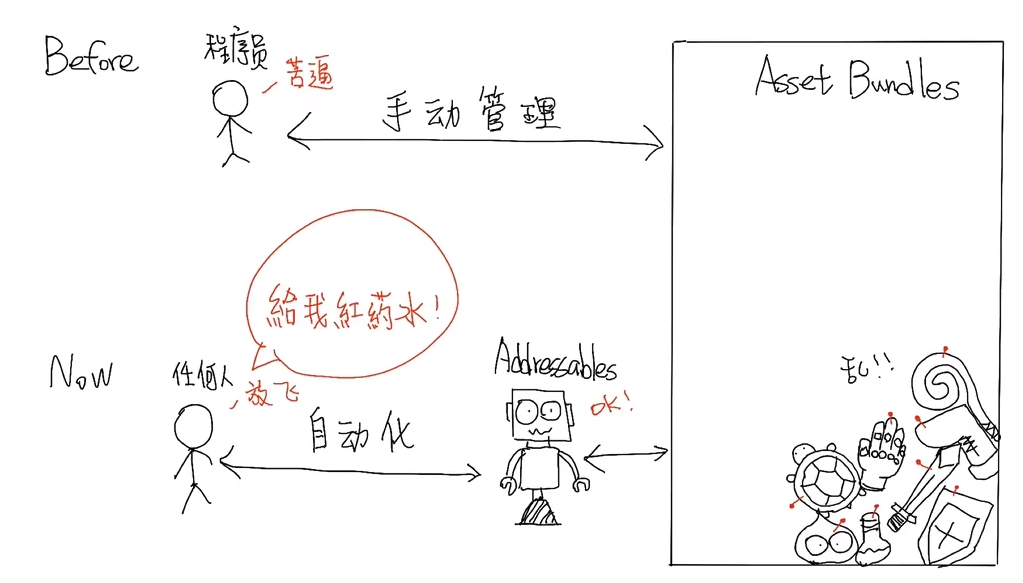 Before
程序员
苦逼
手动管理
Asset Bundles
給我紅药水!
Now
任何人
放飞
自动化
Addressables
OK!
乱!!